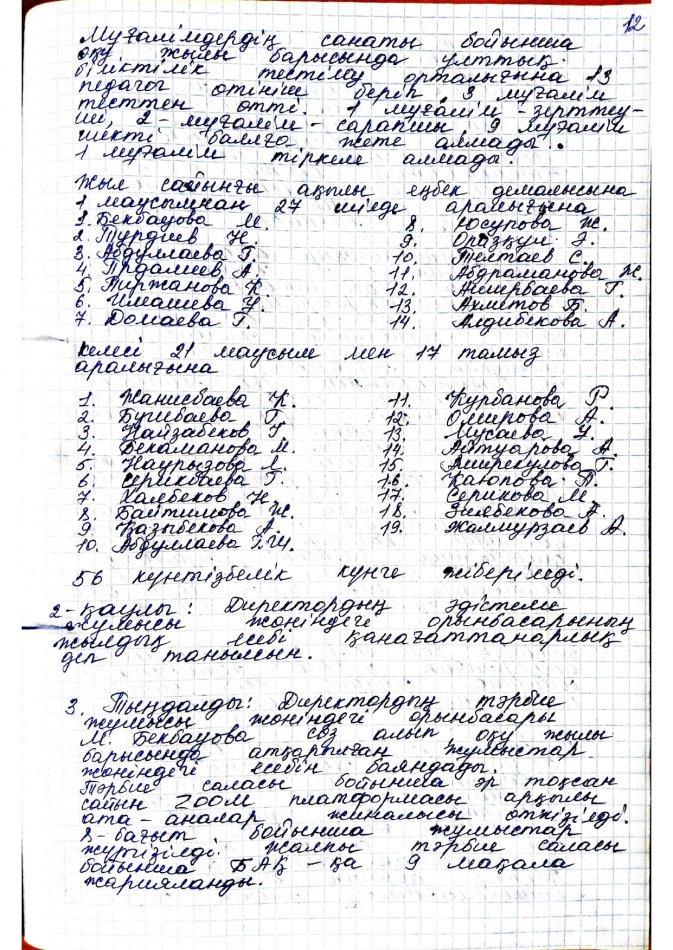 12
Мұғалімдердің санаты бойынша
оқу жылы барысында ұлттық
біліктілік тестілеу орталығына 13
педагог өтініш беріп, 3 мұғалім
тесттен өтті. 1 мұғалім - зерттеу-
ші, 2 - мұғалім - сарапшы, 9 мұғалім
шекті балға жете алмады.
1 мұғалім тіркеле алмады.
Жыл сайынғы ақылы еңбек демалысына
1 маусымнан 27 шілде аралығына
1. Бекбауова М.
2. Турдиев Н.
3. Абдуллаева Г.
4. Прдалиев А.
5. Тиржанова К.
6. Имашева У.
7. Домаева Г.
8. Юсупова Ж.
9. Оразкул Э.
10. Телтаев С.
11. Абдраманова Ж.
12. Жиырбаева Г.
13. Ахметов Б.
14. Алдибекова А.
келесі 21 маусым мен 17 тамыз
аралығына
1. Жанисбаева К.
2. Бушбаева Г.
3. Найзабеков Г
4. Бекаманова М.
5. Наурызова Л.
6. Серикбаева Г.
7. Халбеков Н
8. Байтимова Ж.
9. Қазыбекова А.
10. Абдуллаева Г.Ш.
11. Курбанова Р.
12. Омирова А.
13. Мусаева У.
14. Айтуарова А.
15. Аширекулова Г.
16. Каюпова П.
17. Серикова М.
18. Элебекова А.
19. Жалмурзаев А.
56 күнтізбелік күнге жіберіледі.
2-қаулы: Директордың әдістеме
жұмысы жөніндегі орынбасарының
жылдық есебі қанағаттанарлық
деп танылсын.
3. Тыңдалды: Директордың тәрбие
жұмысы жөніндегі орынбасары
М. Бекбауова сөз алып оқу жылы
барысында атқарылған жұмыстар
жөніндегі есебін баяндады.
Тәрбие саласы бойынша әр тоқсан
сайын ZOOM платформасы арқылы
ата-аналар жиналысы өткізілді.
8-бағыт бойынша жұмыстар
жүргізілді. Жалпы тәрбие саласы
бойынша БАҚ-қа 9 мақала
жарияланды.